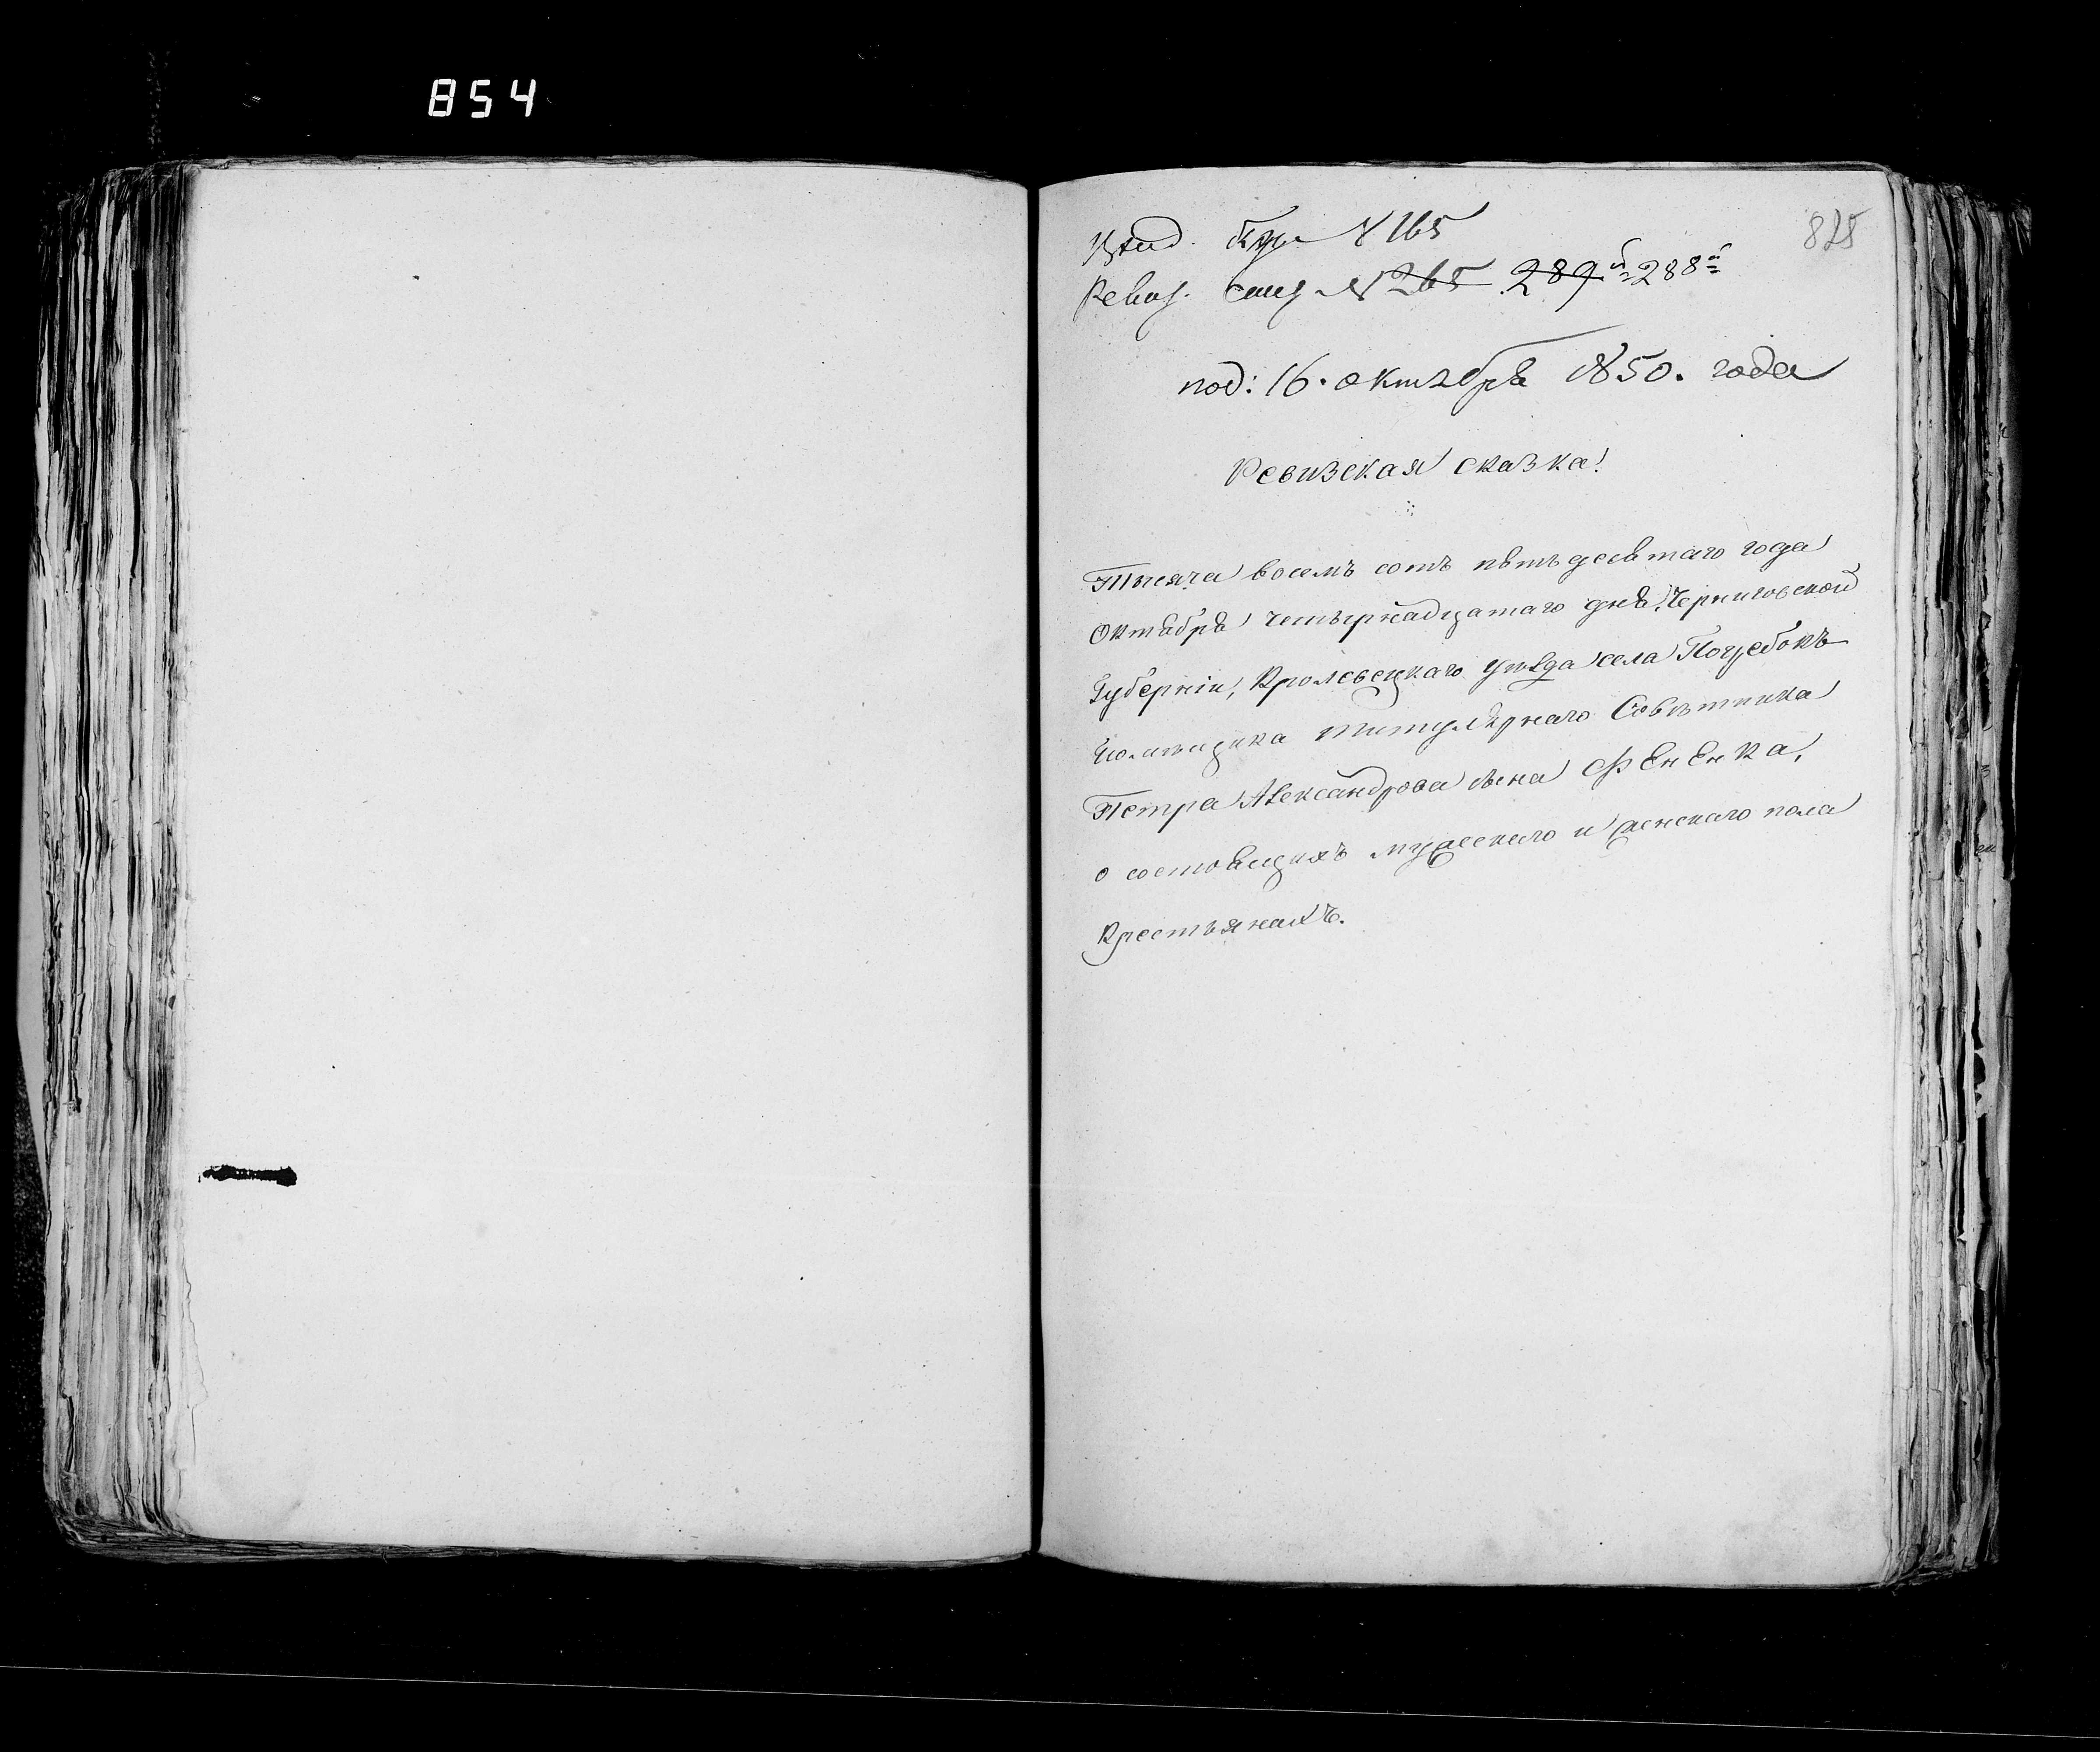 854
825
№ 165
Ревиз. № 265 289й 288й
под: 16. октября 1850. года
Ревизская сказка!
Тысяча восемъ сотъ пятьдесятаго года
Октября четырнадцатаго дня, Черниговской
Губерніи, Кролевецкаго уѣзда села Погребокъ
Помѣщика титулярнаго Совѣтника
Петра Александрова сына Фененка,
о состоящихъ мужескаго и женскаго пола
крестьянахъ.